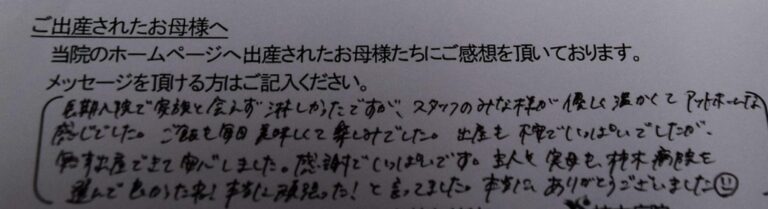 ご出産されたお母様へ
当院のホームページへ出産されたお母様たちにご感想を頂いております。
メッセージを頂ける方はご記入ください。
長期入院で家族と会えず淋しかったですが、スタッフのみな様が優しく温かくてアットホームな
感じでした。ご飯も毎日美味しくて楽しみでした。出産も でいっぱいでしたが、
無事出産できて安心しました。感謝でいっぱいです。主人と実母も、柿木病院を
選んで良かったね!本当に頑張った!と言ってました。本当にありがとうございました